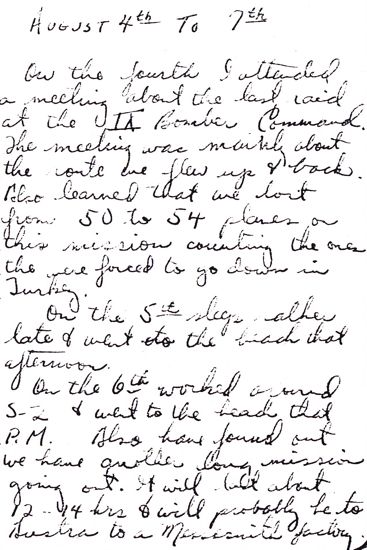 AUGUST 4th TO 7th
On the fourth I attended
a meeting about the last raid
at the IX Bomber Command.
The meeting was mainly about
the route we flew up & back.
Also learned that we lost
from 50 to 54 planes on
this mission counting the ones
the were forced to go down in
Turkey.
On the 5th sleep rather
late & went to the beach that
afternoon.
On the 6th worked around
S-2 & went to the beach that
P.M. Also have found out
we have another long mission
going out. It will last about
12-14 hrs & will probably be to
Austra to a Messersmith factory.